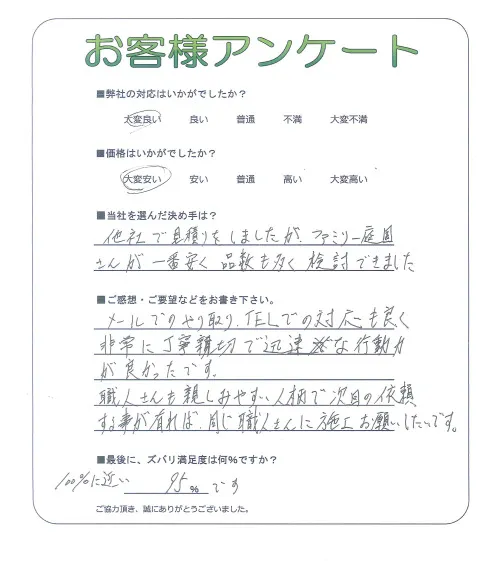 お客様アンケート
■弊社の対応はいかがでしたか？
大変良い 良い 普通 不満 大変不満
■価格はいかがでしたか？
大変安い 安い 普通 高い 大変高い
■当社を選んだ決め手は？
他社で見積りをしましたが、ファミリー庭園
さんが一番安く 品数も多く 検討できました
■ご感想・ご要望などをお書き下さい。
メールでのやり取り、TELでの対応も良く
非常に丁寧親切で迅速な行動力
が良かったです。
職人さんも親しみやすい人柄で次回の依頼
する事が有れば、同じ職人さんに施工お願いしたいです。
■最後に、ズバリ満足度は何%ですか？
100%に近い 95 % です
ご協力頂き、誠にありがとうございました。